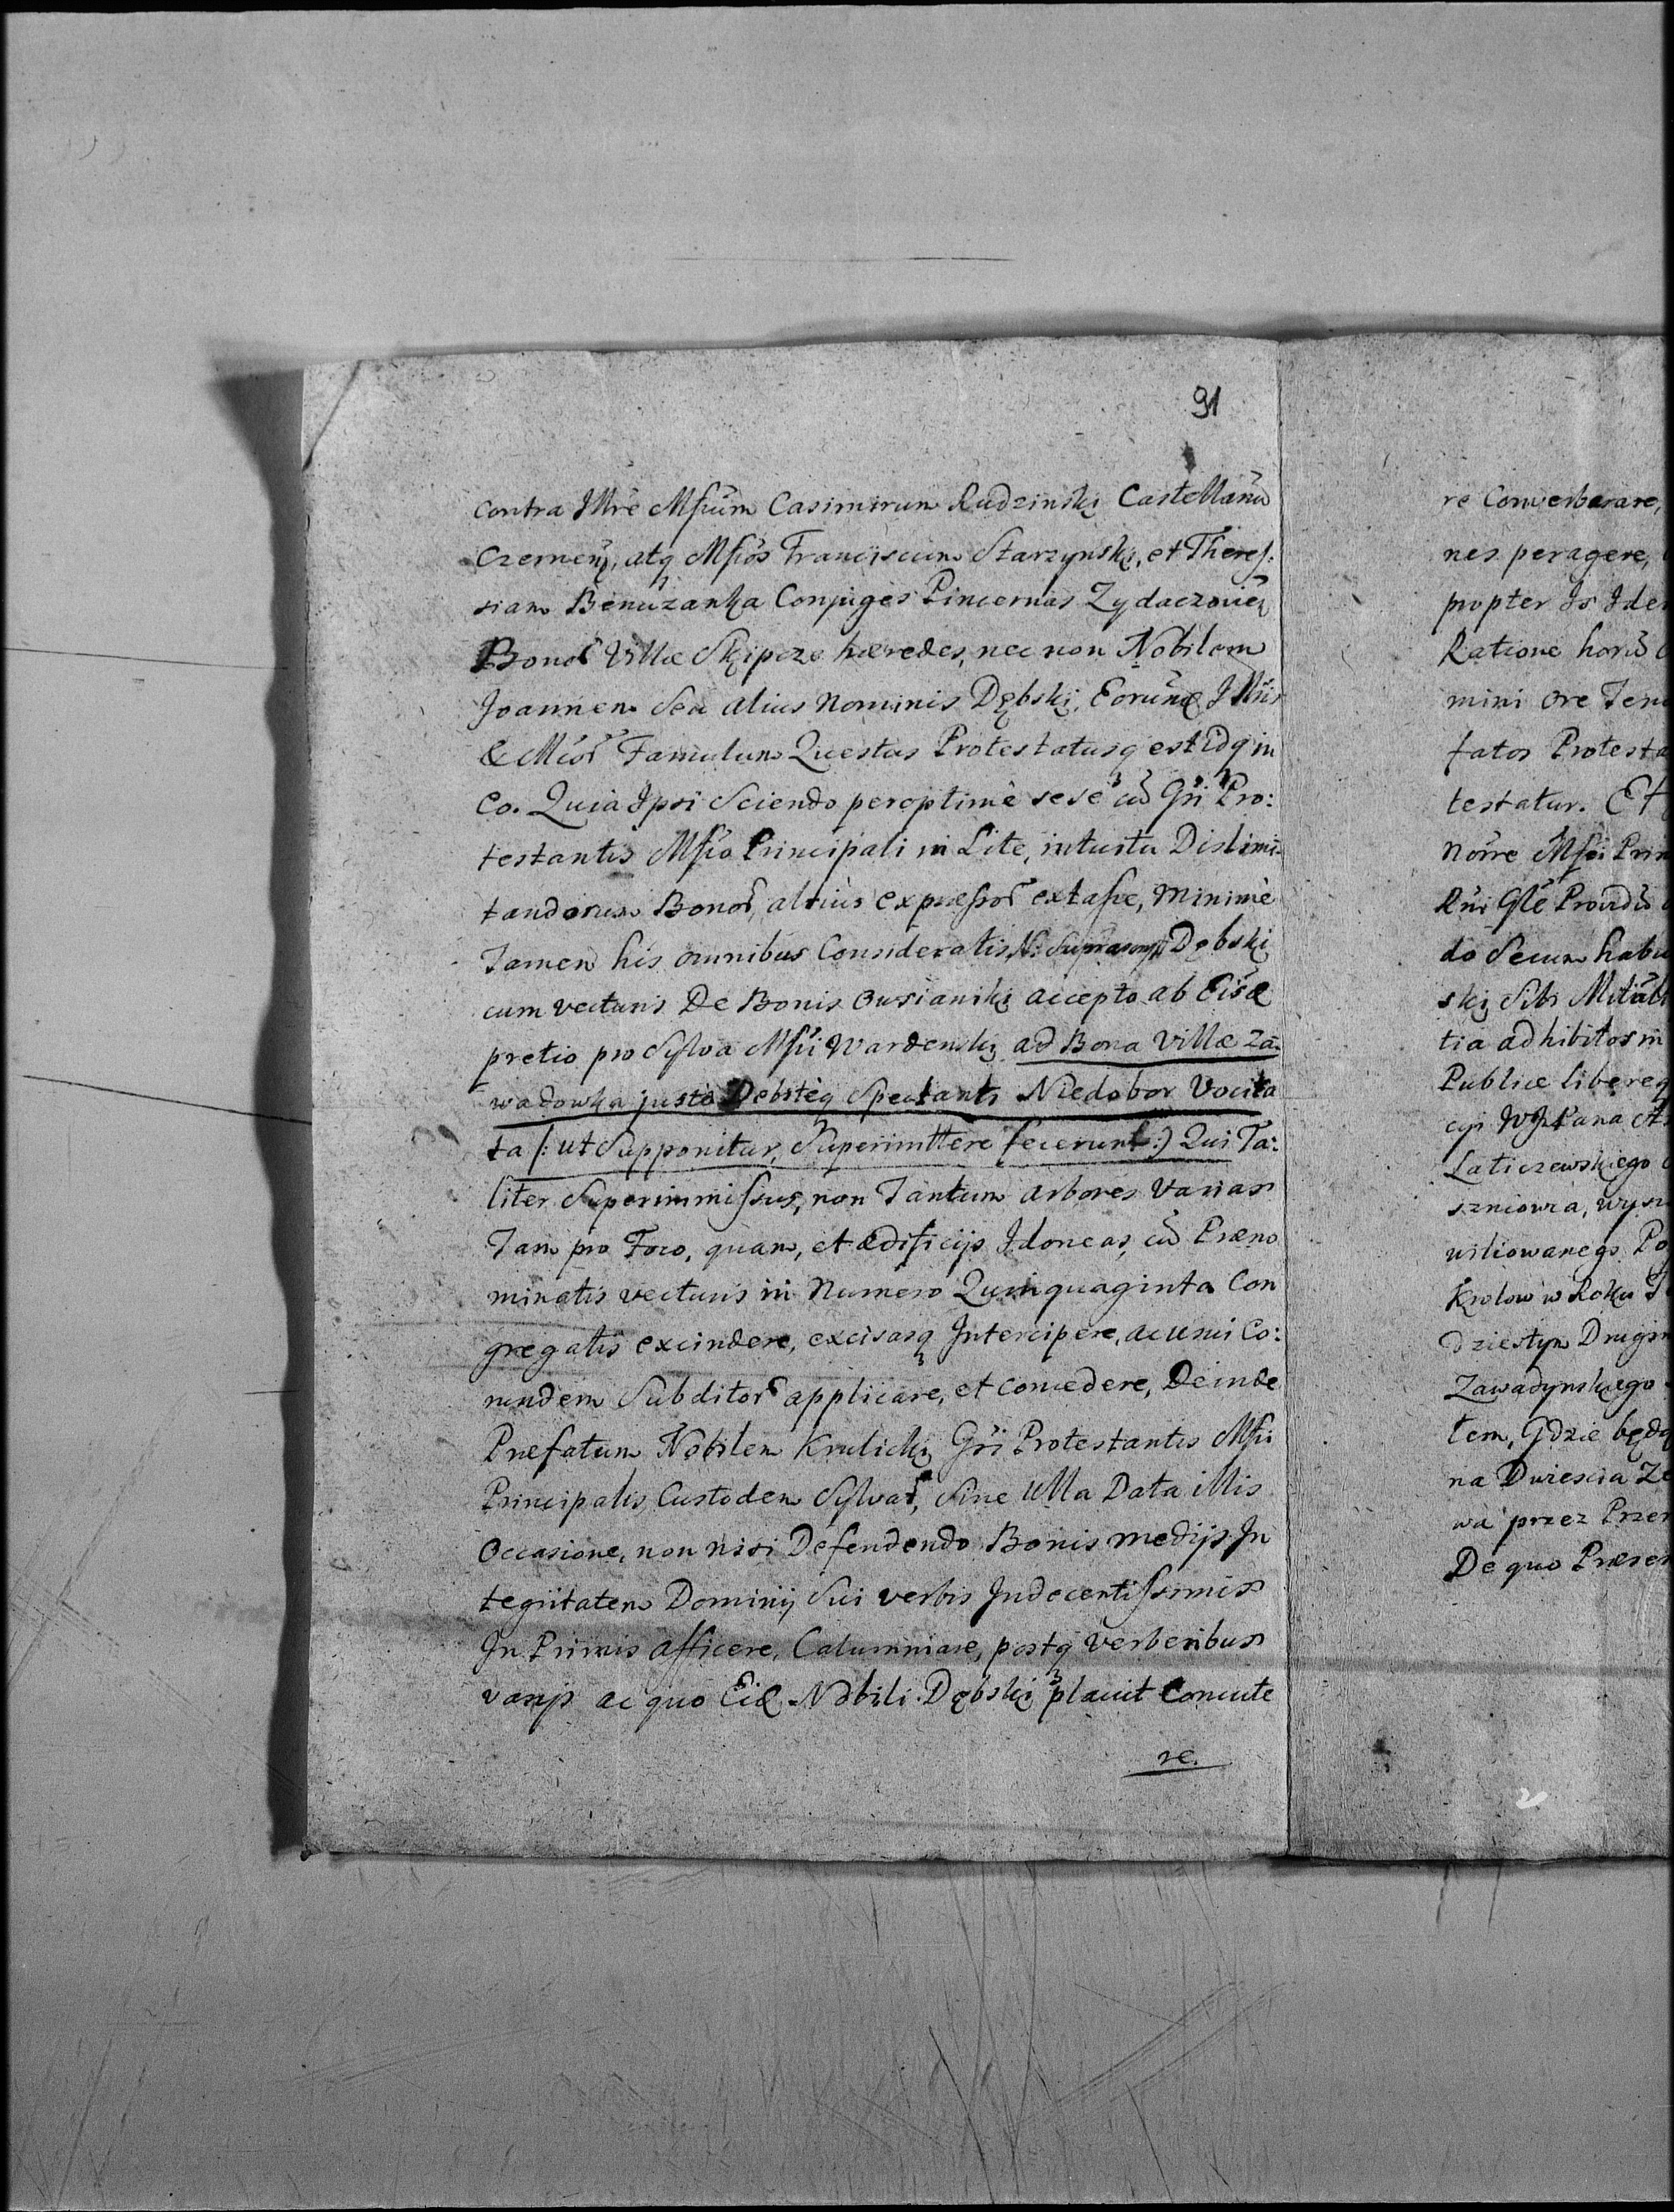 91
contra Illrẽ Mſicũm Casimirum Rudzinski Castellanũ
Czernen̄, atq Mſicos Franciscum Starzynski, et Thereſ:
siam Benuzanka Conjuges Pincernas Zydaczovień
Bonor̃ Villæ Skipcze hæredes, nec non Nobilem
Joannem Seu alius Nominis Dębski, Eorund̃ Illris
& Mcor̃ Famulum Questus Protestatusq est idq in
Eo. Quia Ipsi Sciendo peroptimè sese cũ Gñi Pro:
testantis Mſico Principali in Lite, intuitu Dislimi:
tandorum Bonor̃, altius expreſsor̃ extaſse, minimè
Tamen his omnibus Consideratis, N: Dębski
cum vecturis De Bonis Owsianiki accepto ab Eisd̃
pretio pro Sylva Mſici Wardenski ad Bona Villæ Za:
wadowka justè Debitèq Spectanti Niedobor Vocita
ta /: ut Supponitur, Superimittere fecerunt :) Qui Ta:
liter Superimmiſsus, non Tantum arbores Varias
Tam pro Foco, quam, et ædificijs Idoneas, cũ Præno
minatis vecturis in Numero Quinquaginta Con
gregatis excindere, excisasq Intercipere, ac usui Eo:
rundem Subditor̃ applicare, et Concedere, Deinde
Præfatum Nobilem Krulicki Gñi Protestantis Mſici
Principalis, Custodem Sylvar̃, Sine Ulla Data illis
Occasione, non nisi Defendendo Bonis medijs In
tegritatem Dominij Sui verbis Indecentiſsimis
In Primis afficere, Calumniare, postq Verberibus
varijs ac quo Eid̃ Nobili Dębski placuit Concute
re.
re Converberare,
nes peragere,
propter Is Ide
Ratione horũ
mini ore Ten
fatos Protesta
testatur. Et
Noĩre Mſici Prin
Rñi Gle Providũ
do Secum habu
ski, Sibi
tia ad hibitos in
Publice libereq
cyi WJPana
Laticzewskiego
szniowca,
Po
Krolow w Roku
dziestym Drugim
Zawadynskiego
tem, Gdzie będą
na Dwiescia
wa przez Przer
De quo Præsen